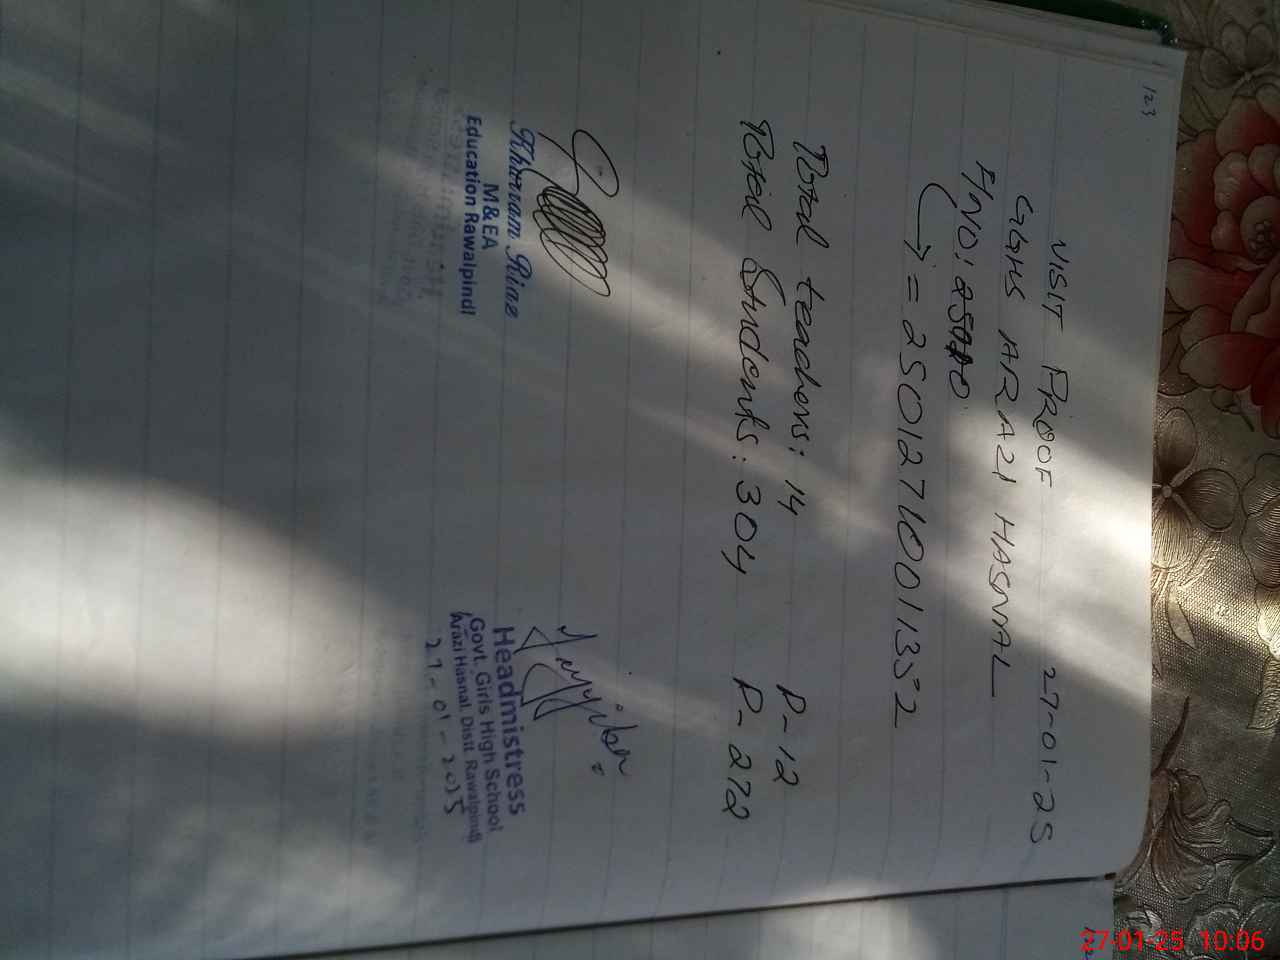 123
VISIT PROOF 27-01-25
GGHS ARAZI HASNAL
HNO:
→ = 2501271001352
Total teachers: 14 P-12
Total Students: 304 P-272
Khurram Riaz
M&EA
Education Rawalpindi
Headmistress
Govt. Girls High School
Arazi Hasnal Distt. Rawalpindi
27-01-2025
27-01-25 10:06